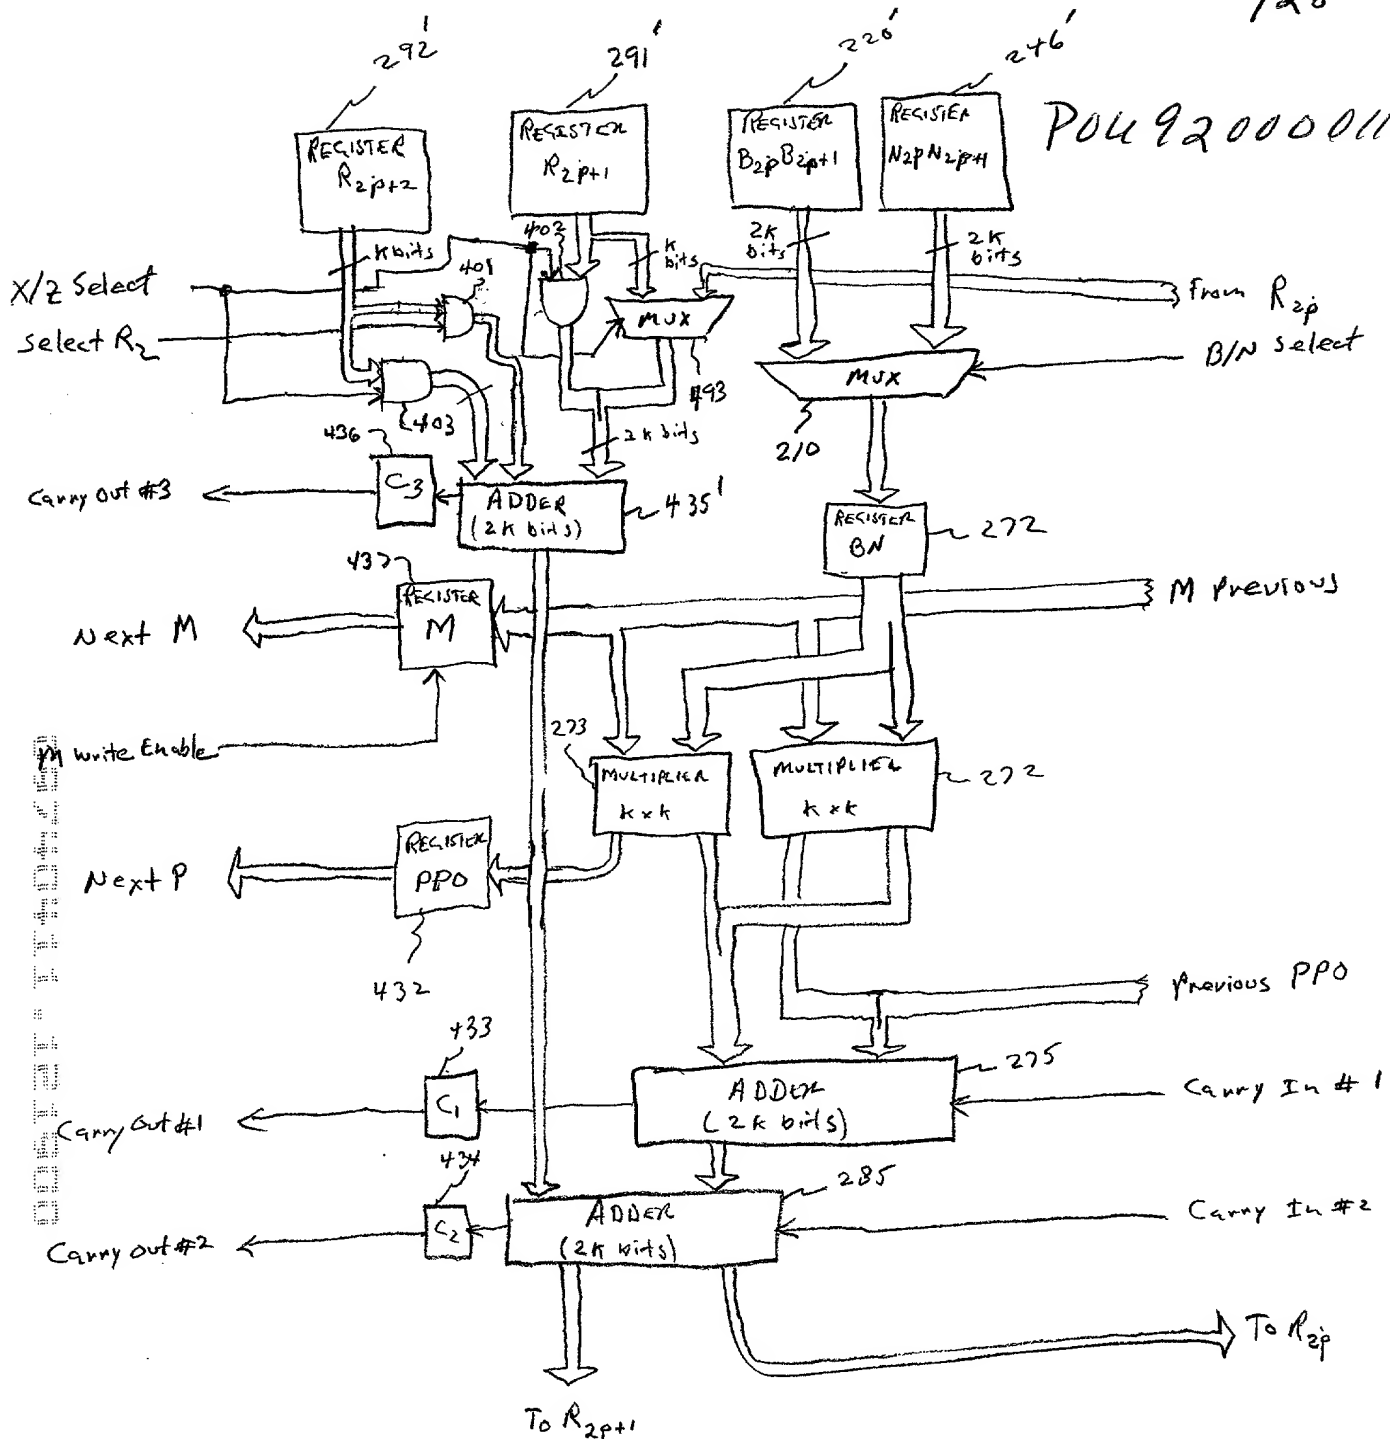 292'
291'
220'
246'
POU92000011
REGISTER
R2p+2
REGISTER
R2p+1
REGISTER
B2pB2p+1
REGISTER
N2pN2p+1
402
k bits
401
k
bits
2k
bits
2k
bits
X/Z Select
From R2p
Select R2
MUX
B/N Select
MUX
493
403
436
2k bits
210
Carry Out #3
C3
ADDER
(2k bits)
435'
REGISTER
BN
272
437
REGISTER
M
M Previous
Next M
273
M Write Enable
MULTIPLIER
k x k
MULTIPLIER
k x k
272
REGISTER
PPO
Next P
432
Previous PPO
433
275
C1
ADDER
(2k bits)
Carry In #1
Carry Out #1
434
285
C2
ADDER
(2k bits)
Carry In #2
Carry Out #2
To R2p
To R2p+1